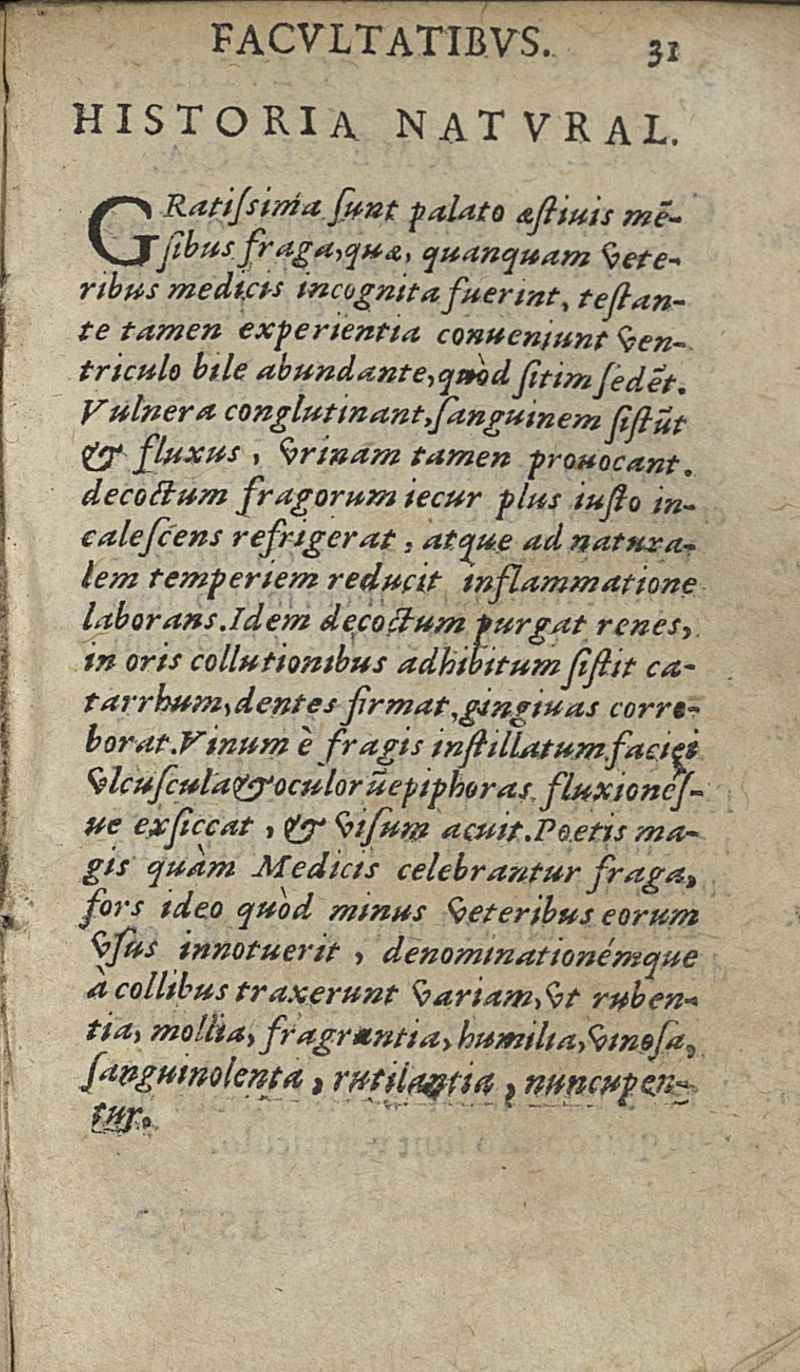 FACVLTATIBVS. 31
HISTORIA NATVRAL.
GRatiſsima ſunt palato æſtiuis mē-
ſibus fraga, quæ, quanquam vete-
ribus medicis incognita fuerint, teſtan-
te tamen experientia conueniunt ven-
triculo bile abundante, quòd ſitim ſedēt.
Vulnera conglutinant, ſanguinem ſiſtūt
& fluxus, vrinam tamen prouocant.
decoctum fragorum iecur plus iuſto in-
caleſcens refrigerat, atque ad natura-
lem temperiem reducit inflammatione
laborans. Idem decoctum purgat renes,
in oris collutionibus adhibitum ſiſtit ca-
tarrhum, dentes firmat, gingiuas corro-
borat. Vinum è fragis inſtillatum faciei
vlcuſcula & oculorū epiphoras fluxioneſ-
ue exſiccat, & viſum acuit. Poetis ma-
gis quàm Medicis celebrantur fraga,
fors ideo quòd minus veteribus eorum
vſus innotuerit, denominationémque
à collibus traxerunt variam, vt ruben-
tia, mollia, fragrantia, humilia, vinoſa,
ſanguinolenta, rutilantia, nuncupen-
tur.